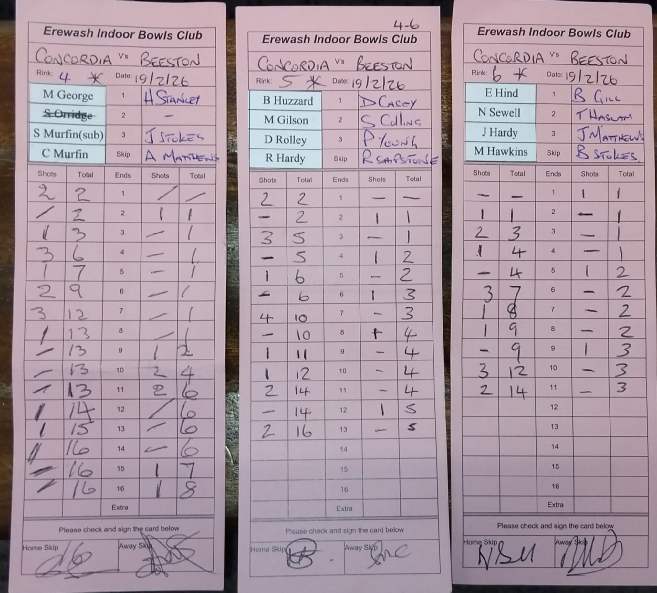 Erewash Indoor Bowls Club
CONCORDIA Vs BEESTON
Rink: 4 * Date: 19/2/26
M George 1 H STANLEY
S Orridge 2 -
S Murfin(sub) 3 J STOKES
C Murfin Skip A MATTHEWS
Shots Total Ends Shots Total
2 2 1 / /
/ 2 2 1 1
1 3 3 - 1
3 6 4 - 1
1 7 5 - 1
2 9 6 - 1
3 12 7 - 1
1 13 8 / 1
- 13 9 1 2
- 13 10 2 4
- 13 11 2 6
1 14 12 / 6
1 15 13 - 6
1 16 14 - 6
- 16 15 1 7
- 16 16 1 8
Extra
Please check and sign the card below
Home Skip Away Skip
4-6
Erewash Indoor Bowls Club
CONCORDIA Vs BEESTON
Rink: 5 * Date: 19/2/26
B Huzzard 1 D CACEY
M Gilson 2 S Collins
D Rolley 3 P YOUNG
R Hardy Skip R SAPSTONE
Shots Total Ends Shots Total
2 2 1 - -
- 2 2 1 1
3 5 3 - 1
- 5 4 1 2
1 6 5 - 2
- 6 6 1 3
4 10 7 - 3
- 10 8 1 4
1 11 9 - 4
1 12 10 - 4
2 14 11 - 4
- 14 12 1 5
2 16 13 - 5
14
15
16
Extra
Please check and sign the card below
Home Skip Away Skip
Erewash Indoor Bowls Club
CONCORDIA Vs BEESTON
Rink: 6 * Date: 19/2/26
E Hind 1 B GILL
N Sewell 2 T HASLAM
J Hardy 3 J MATTHEWS
M Hawkins Skip B STOKES
Shots Total Ends Shots Total
- - 1 1 1
1 1 2 - 1
2 3 3 - 1
1 4 4 - 1
- 4 5 1 2
3 7 6 - 2
1 8 7 - 2
1 9 8 - 2
- 9 9 1 3
3 12 10 - 3
2 14 11 - 3
12
13
14
15
16
Extra
Please check and sign the card below
Home Skip Away Skip